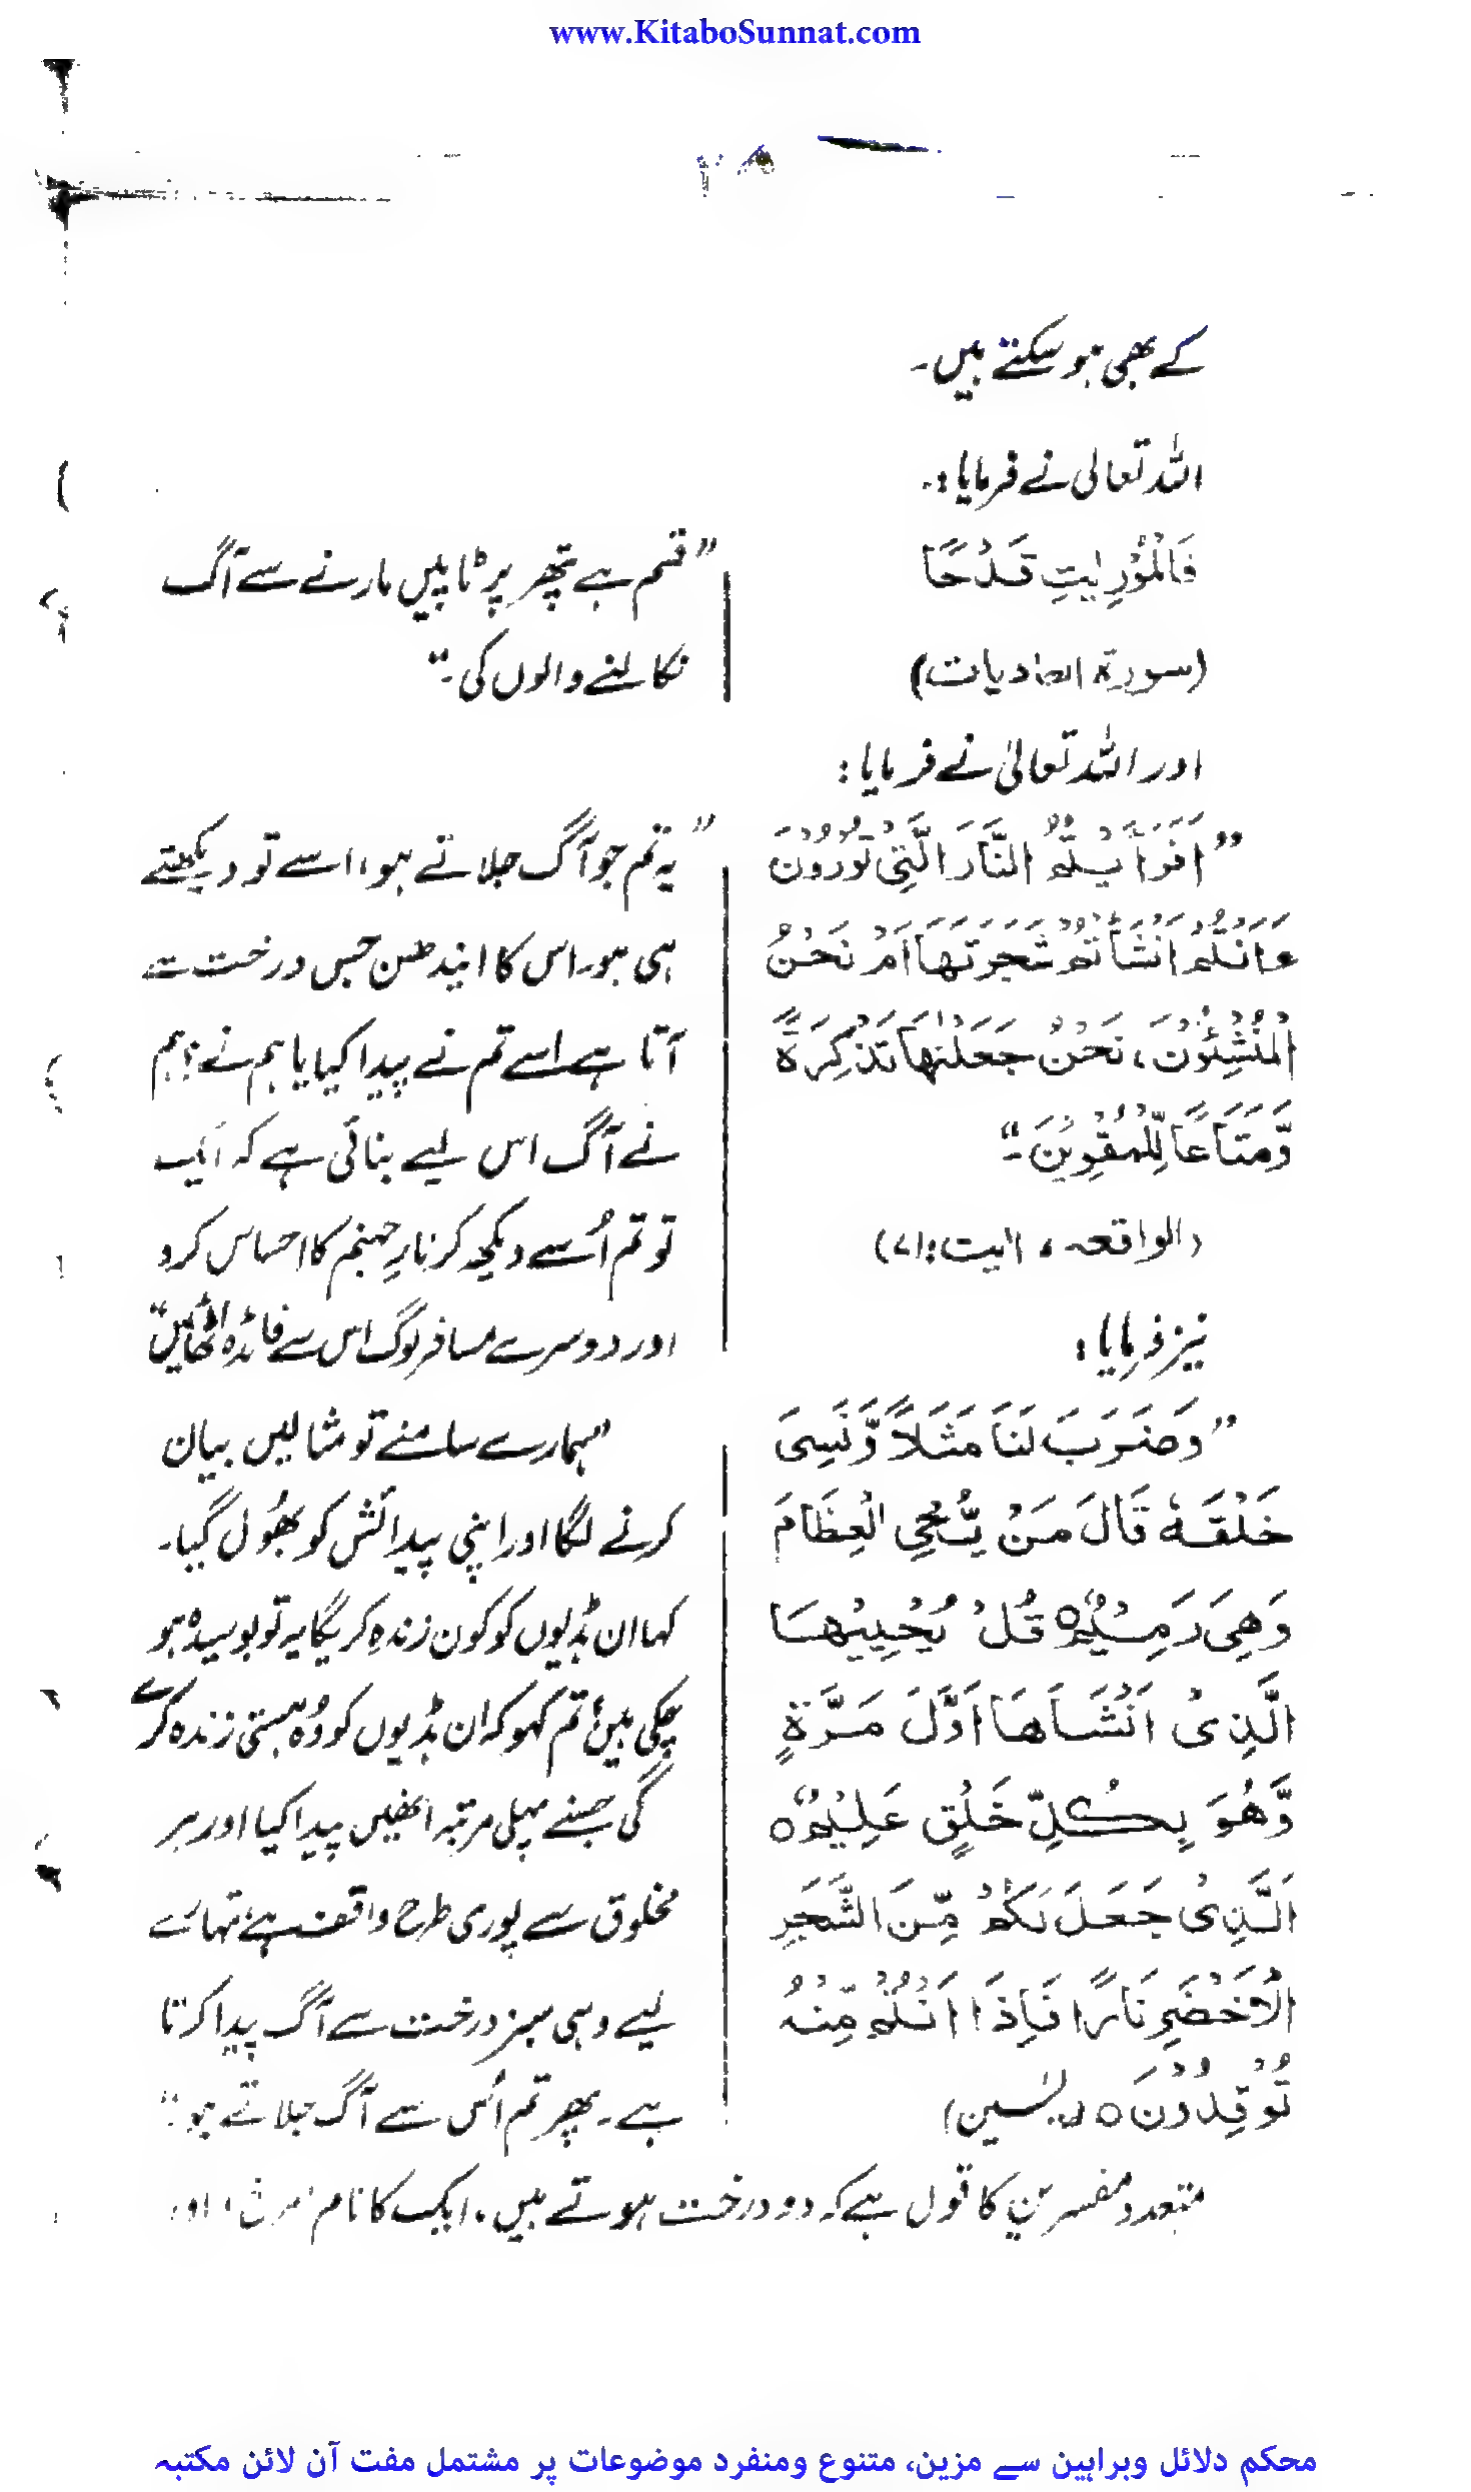 www.KitaboSunnat.com
کے بھی ہو سکتے ہیں۔
اللہ تعالی نے فرمایا:۔
فَالْمُوْرِیٰتِ قَدْحًا
(سورۃ العادیات)
”قسم ہے پتھر پر ٹاپیں مارنے سے آگ
نکالنے والوں کی۔“
اور اللہ تعالیٰ نے فرمایا:
”اَفَرَاَیْتُمُ النَّارَ الَّتِیْ تُوْرُوْنَ
ءَاَنْتُمْ اَنْشَاْتُمْ شَجَرَتَهَا اَمْ نَحْنُ
الْمُنْشِئُوْنَ، نَحْنُ جَعَلْنٰهَا تَذْكِرَةً
وَّمَتَاعًا لِّلْمُقْوِیْنَ۔“
(الواقعہ، آیت: ۷۱)
”یہ تم جو آگ جلاتے ہو، اسے تو دیکھتے
ہی ہو۔ اس کا ایندھن جس درخت سے
آتا ہے اسے تم نے پیدا کیا یا ہم نے؟ ہم
نے آگ اس لیے بنائی ہے کہ ایک
تو تم اُسے دیکھ کر نارِ جہنم کا احساس کرو
اور دوسرے مسافر لوگ اس سے فائدہ اٹھائیں“
نیز فرمایا:
”وَضَرَبَ لَنَا مَثَلًا وَّنَسِیَ
خَلْقَهٗ قَالَ مَنْ یُّحْیِ الْعِظَامَ
وَهِیَ رَمِیْمٌ ہ قُلْ یُحْیِیْهَا
الَّذِیْ اَنْشَاَهَا اَوَّلَ مَرَّةٍ
وَّهُوَ بِكُلِّ خَلْقٍ عَلِیْمٌ ہ
الَّذِیْ جَعَلَ لَكُمْ مِّنَ الشَّجَرِ
الْاَخْضَرِ نَارًا فَاِذَا اَنْتُمْ مِّنْهُ
تُوْقِدُوْنَ ہ (یٰسین)
”ہمارے سامنے تو مثالیں بیان
کرنے لگا اور اپنی پیدائش کو بھُول گیا۔
کہا ان ہڈیوں کو کون زندہ کریگا یہ تو بوسیدہ ہو
چکی ہیں؛ تم کہو کہ ان ہڈیوں کو وُہ ہستی زندہ کرے
گی جسنے پہلی مرتبہ انھیں پیدا کیا اور ہر
مخلوق سے پوری طرح واقف ہے، تمہارے
لیے وہی سبز درخت سے آگ پیدا کرتا
ہے۔ پھر تم اُس سے آگ جلاتے ہو۔“
متعدد مفسرین کا قول ہے کہ دو درخت ہوتے ہیں، ایک کا نام اور
محکم دلائل وبراہین سے مزین، متنوع ومنفرد موضوعات پر مشتمل مفت آن لائن مکتبہ